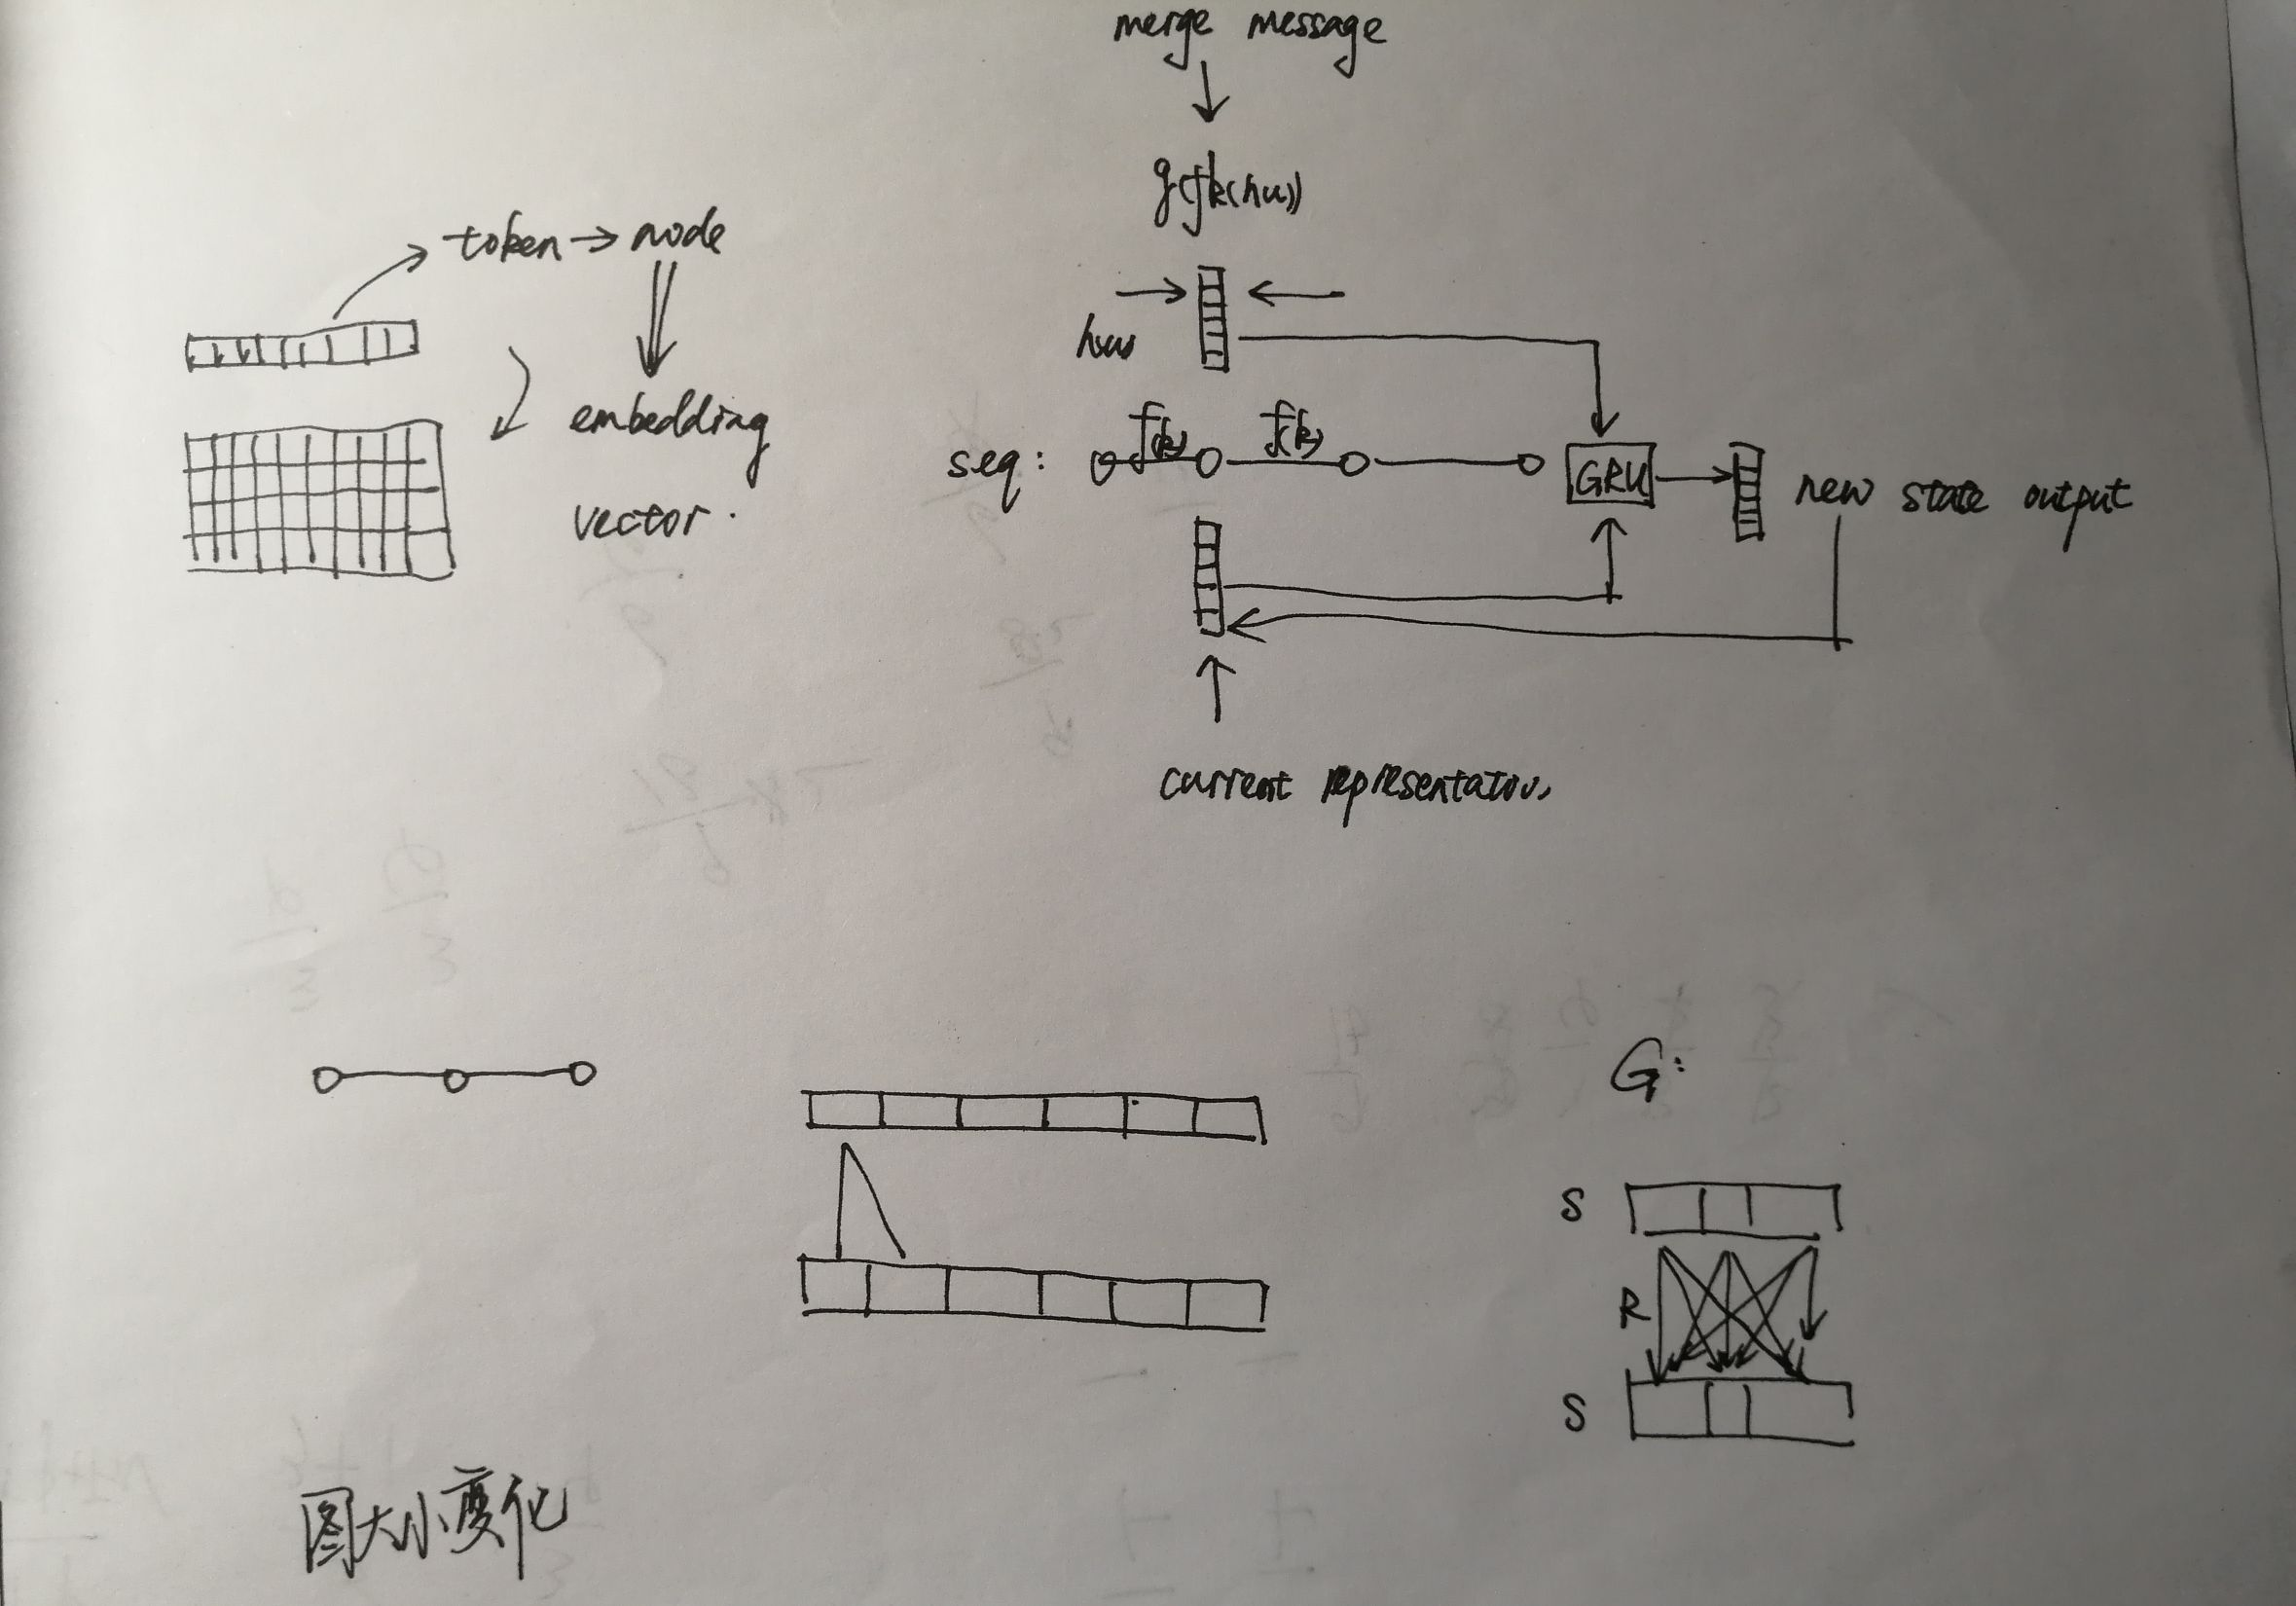 merge message
g(fk(hu))
token → node
embedding
vector.
seq:
f(k)
f(k)
GRU
new state output
current representation
G:
S
R
S
图大小变化